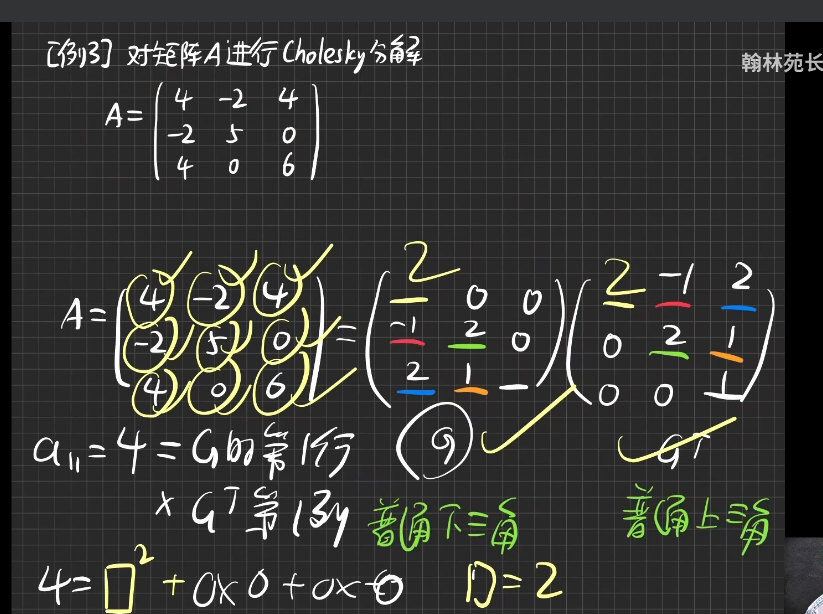 [例3] 对矩阵A进行Cholesky分解
翰林苑长
A= ( 4 -2 4
-2 5 0
4 0 6 )
A= ( 4 -2 4 -2 5 0 4 0 6 ) = ( 2 0 0 -1 2 0 2 1 _ ) ( 2 -1 2 0 2 1 0 0 1 )
a₁₁=4=G的第1行 G Gᵀ
×Gᵀ第1列 普通下三角 普通上三角
4=□²+0×0+0×0 □=2